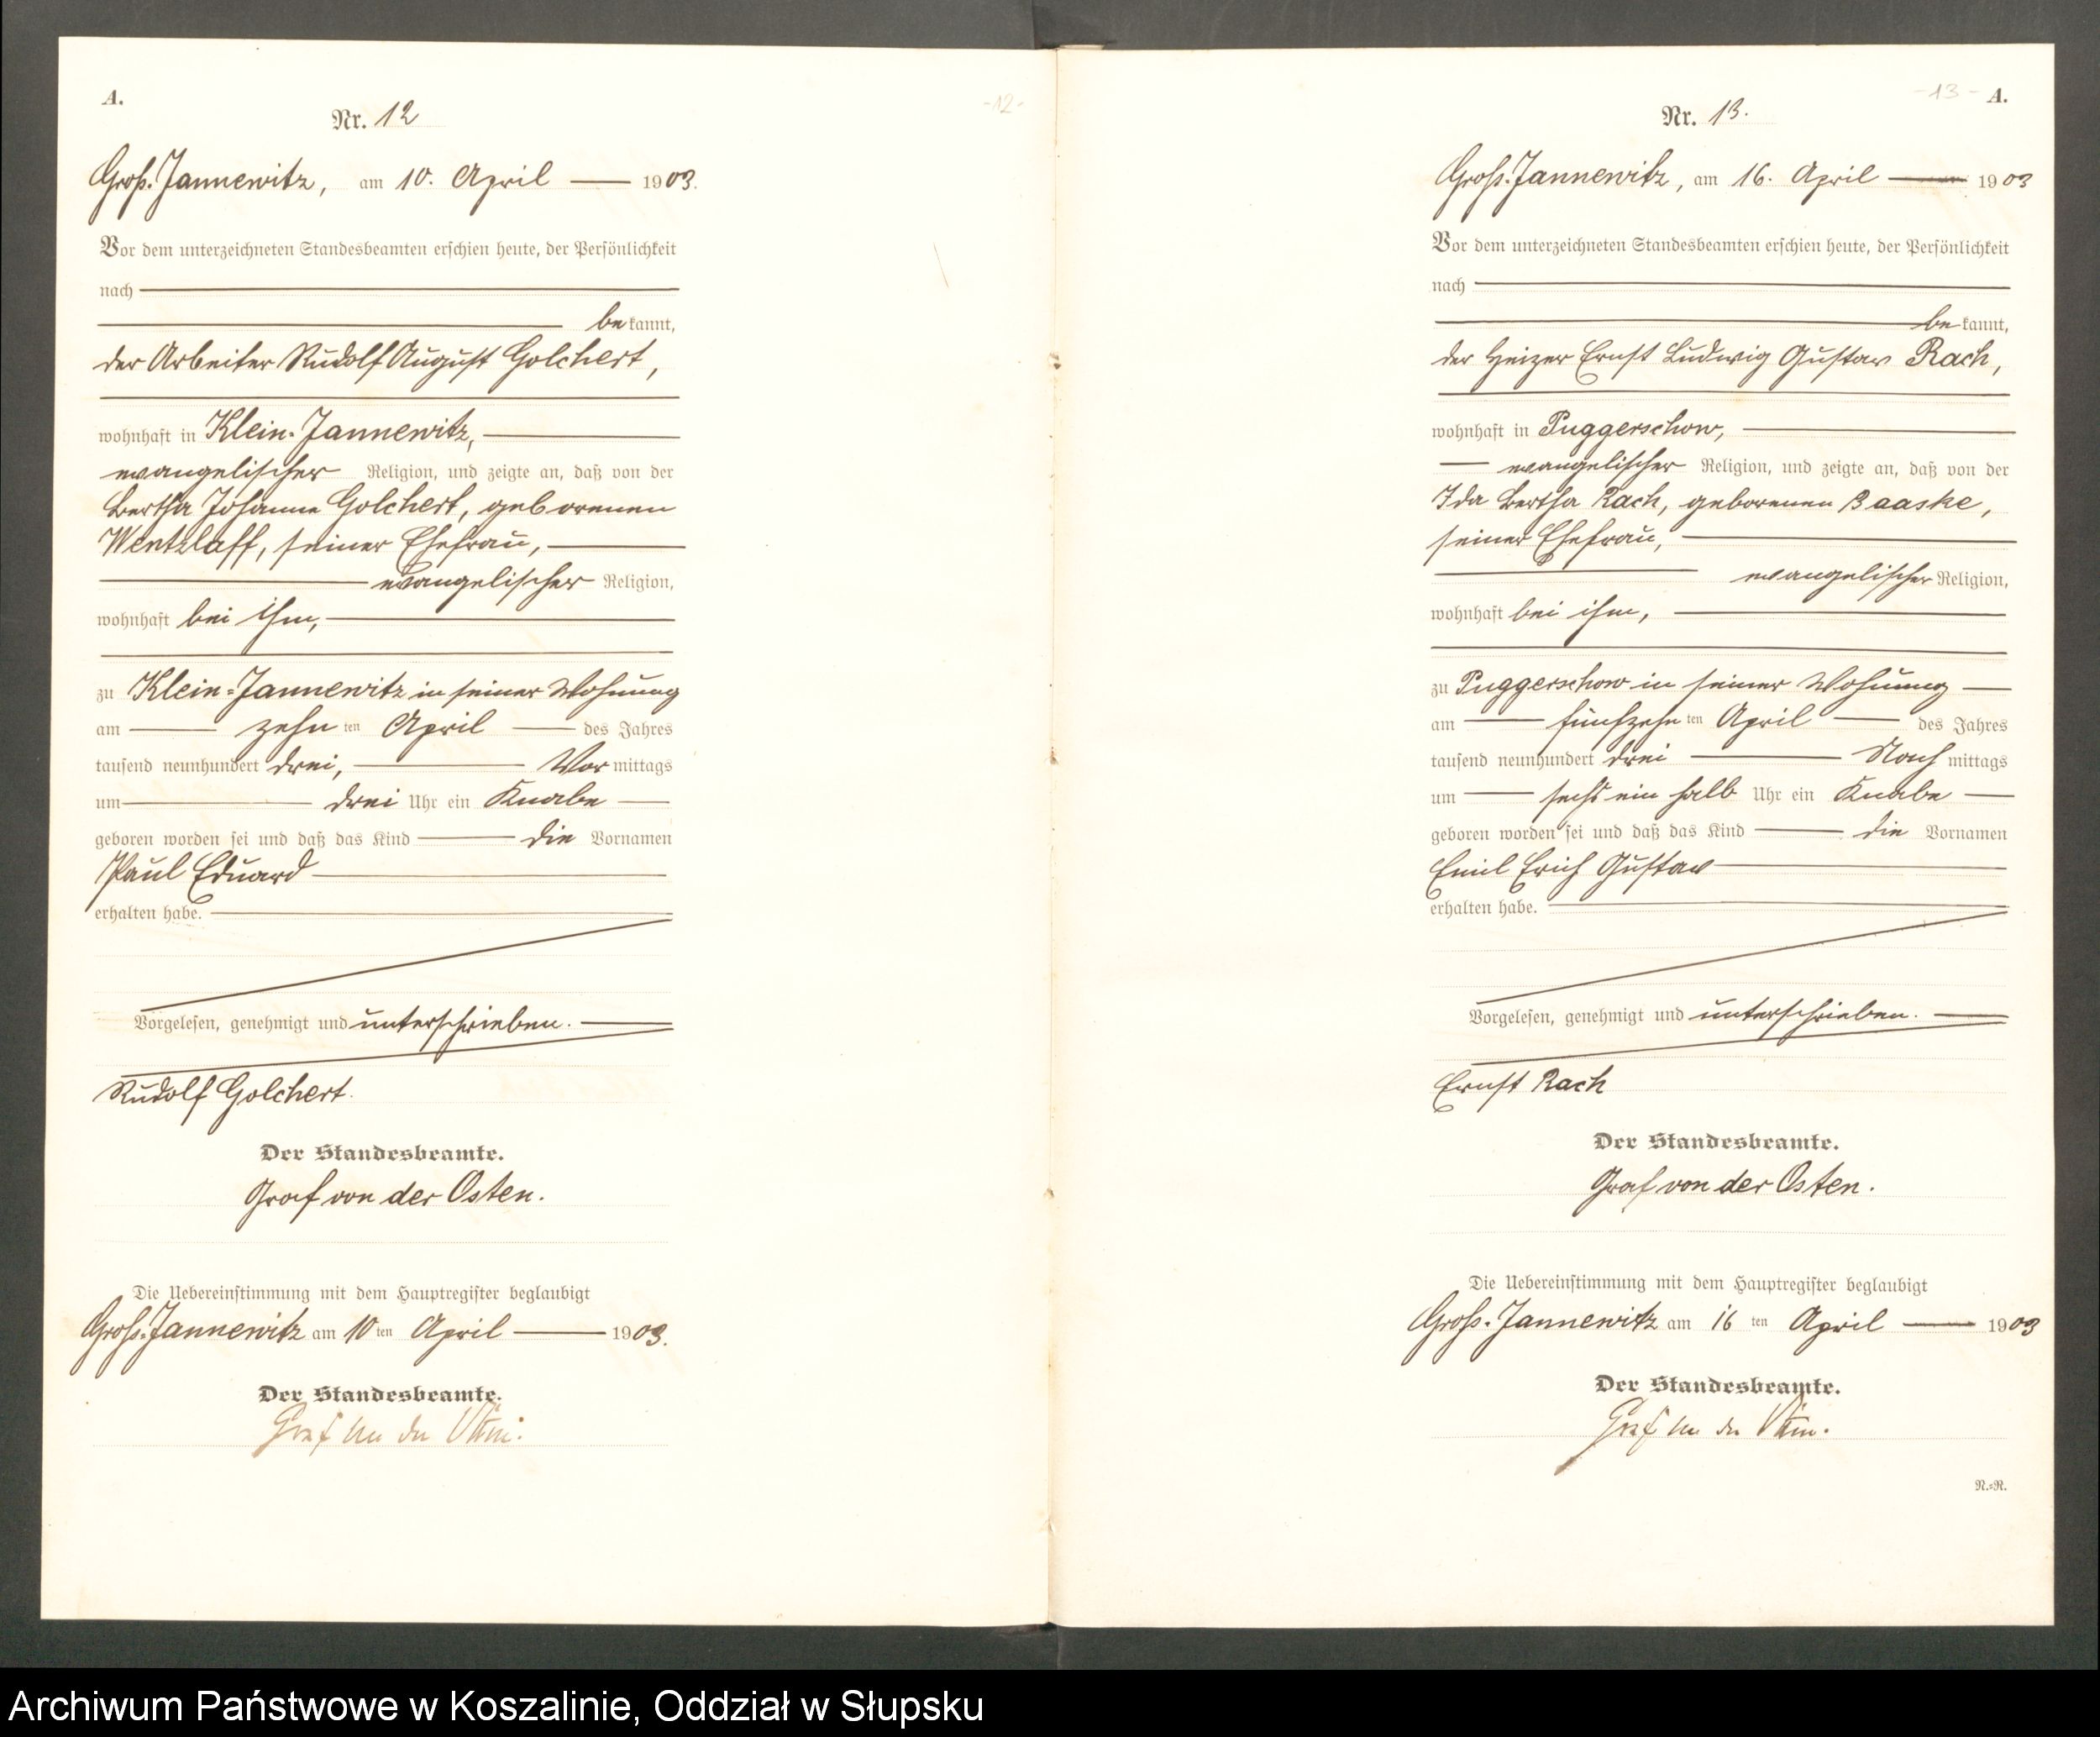 A.
Nr. 12
Groß-Jannewitz, am 10. April 1903.
Vor dem unterzeichneten Standesbeamten erschien heute, der Persönlichkeit
nach
bekannt,
der Arbeiter Rudolf August Golchert,
wohnhaft in Klein-Jannewitz,
evangelischer Religion, und zeigte an, daß von der
Bertha Johanne Golchert, geborenen
Wentzlaff, seiner Ehefrau,
evangelischer Religion,
wohnhaft bei ihm,
zu Klein-Jannewitz in seiner Wohnung
am zehnten April des Jahres
tausend neunhundert drei, Vormittags
um drei Uhr ein Knabe
geboren worden sei und daß das Kind die Vornamen
Paul Eduard
erhalten habe.
Vorgelesen, genehmigt und unterschrieben.
Rudolf Golchert.
Der Standesbeamte.
Graf von der Osten.
Die Uebereinstimmung mit dem Hauptregister beglaubigt
Groß-Jannewitz am 10ten April 1903.
Der Standesbeamte.
Graf von der Osten.
-12-
-13- A.
Nr. 13.
Groß-Jannewitz, am 16. April 1903
Vor dem unterzeichneten Standesbeamten erschien heute, der Persönlichkeit
nach
bekannt,
der Heizer Ernst Ludwig Gustav Rach,
wohnhaft in Puggerschow,
evangelischer Religion, und zeigte an, daß von der
Ida Bertha Rach, geborenen Baaske,
seiner Ehefrau,
evangelischer Religion,
wohnhaft bei ihm,
zu Puggerschow in seiner Wohnung
am fünfzehnten April des Jahres
tausend neunhundert drei Nachmittags
um sechs ein halb Uhr ein Knabe
geboren worden sei und daß das Kind die Vornamen
Emil Erich Gustav
erhalten habe.
Vorgelesen, genehmigt und unterschrieben.
Ernst Rach
Der Standesbeamte.
Graf von der Osten.
Die Uebereinstimmung mit dem Hauptregister beglaubigt
Groß-Jannewitz am 16ten April 1903
Der Standesbeamte.
Graf von der Osten.
N.=R.
Archiwum Państwowe w Koszalinie, Oddział w Słupsku